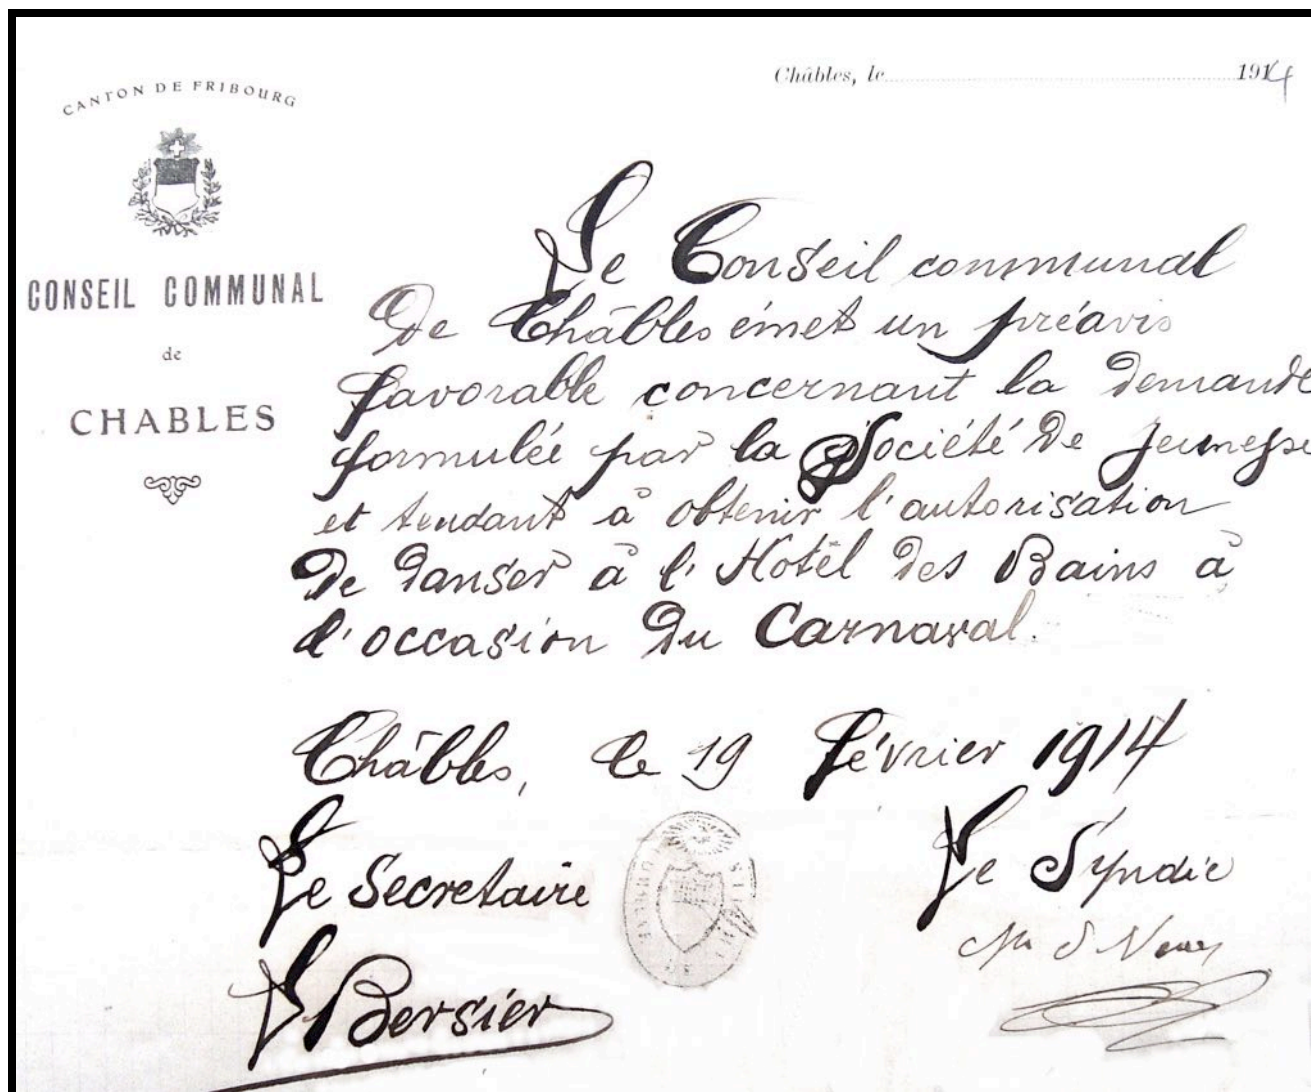 Châbles, le 1914
CANTON DE FRIBOURG
CONSEIL COMMUNAL
de
CHABLES
Le Conseil communal
de Châbles émet un préavis
favorable concernant la demande
formulée par la Société de jeunesse
et tendant à obtenir l'autorisation
de danser à l'Hotel des Bains à
l'occasion du Carnaval.
Châbles, le 19 février 1914
Le Secretaire
Le Syndic
Bersier